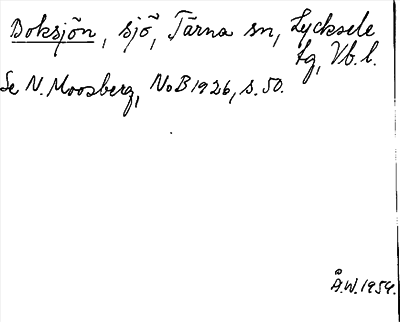 Boksjön, sjö, Tärna sn, Lycksele
lg, Vb.l.
Se N. Moosberg, NoB 1926, s. 50.
Å.W. 1954.